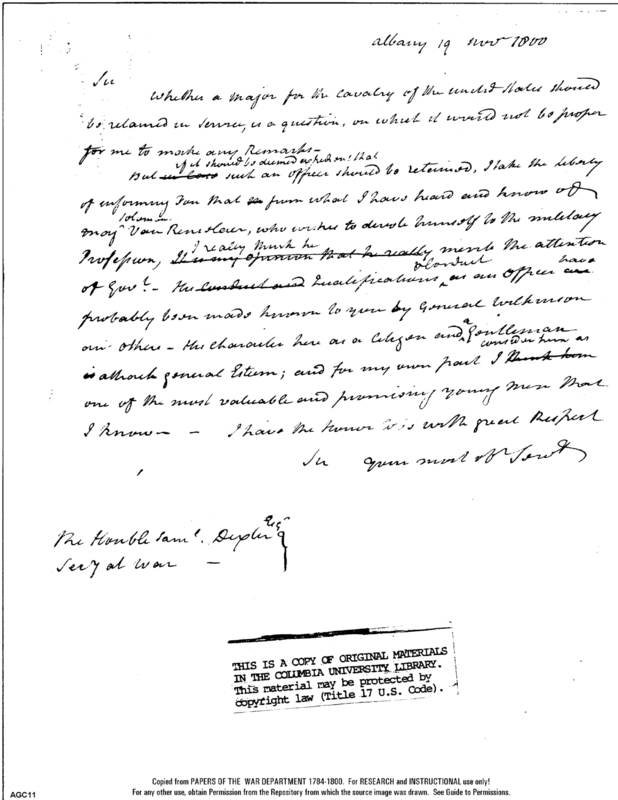 Albany 19 Novr 1800
Sir
Whether a Major for the Cavalry of the united States should
be retained in Service, is a question, on which it would not be proper
for me to make any Remarks—
if it should be deemed expedient that
But in Case such an officer should be retained, I take the liberty
of informing You that from what I have heard and know of
Solomon
Majr Van Renselaer, who wishes to devote himself to the military
I really think he
Profession, It is my opinion that he really merits the attention
of Govt.— His Conduct and Qualifications & Conduct as an officer are have
probably been made known to you by General Wilkinson
and others— His Character here as a Citizen and a Gentleman
consider him as
is attracts general Esteem; and for my own part I think him
one of the most valuable and promising young Men that
I know— — I have the honor to be with great Respect
Sir your most obt Servt
The Honble Saml. Dexter Esqr
Secy at War —
THIS IS A COPY OF ORIGINAL MATERIALS
IN THE COLUMBIA UNIVERSITY LIBRARY.
This material may be protected by
copyright law (Title 17 U.S. Code).
Copied from PAPERS OF THE WAR DEPARTMENT 1784-1800. For RESEARCH and INSTRUCTIONAL use only!
AGC11
For any other use, obtain Permission from the Repository from which the source image was drawn. See Guide to Permissions.